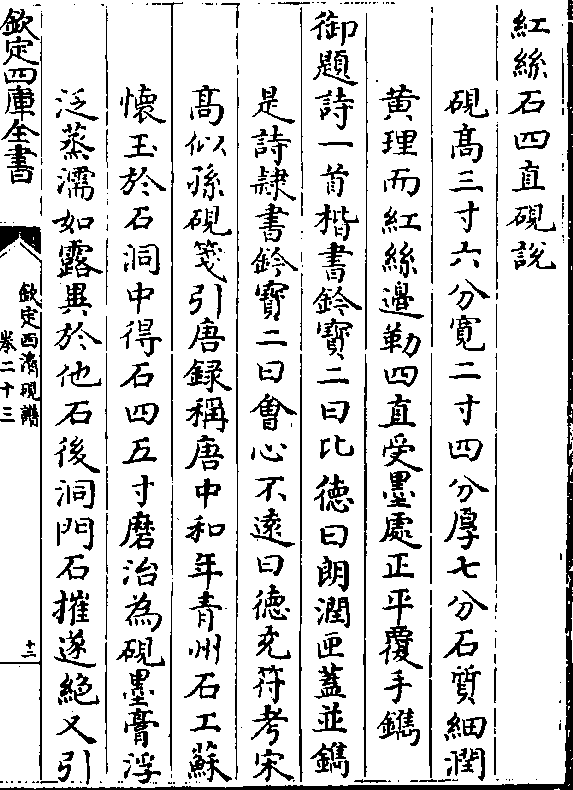 紅絲石四直硯說
硯高三寸六分寬二寸四分厚七分石質細潤
黄理而紅絲邊勒四直受墨處正平覆手鐫
御題詩一首楷書鈐寶二曰比德曰朗潤匣蓋並鐫
是詩隸書鈐寶二曰㑹心不逺曰德充符考宋
髙似孫硯箋引唐録稱唐中和年青州石工蘇
懷玉於石洞中得石四五寸磨治為硯墨膏浮
泛蒸濡如露異於他石後洞門石摧遂絕又引
欽定四庫全書
欽定西清硯譜
卷二十三
十二